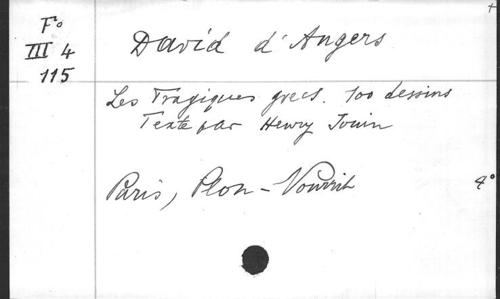 F°
III 4
115
David d'Angers
Les Tragiques grecs. 100 dessins
Texte par Henry Jouin
Paris, Plon-Nourrit
4°
+